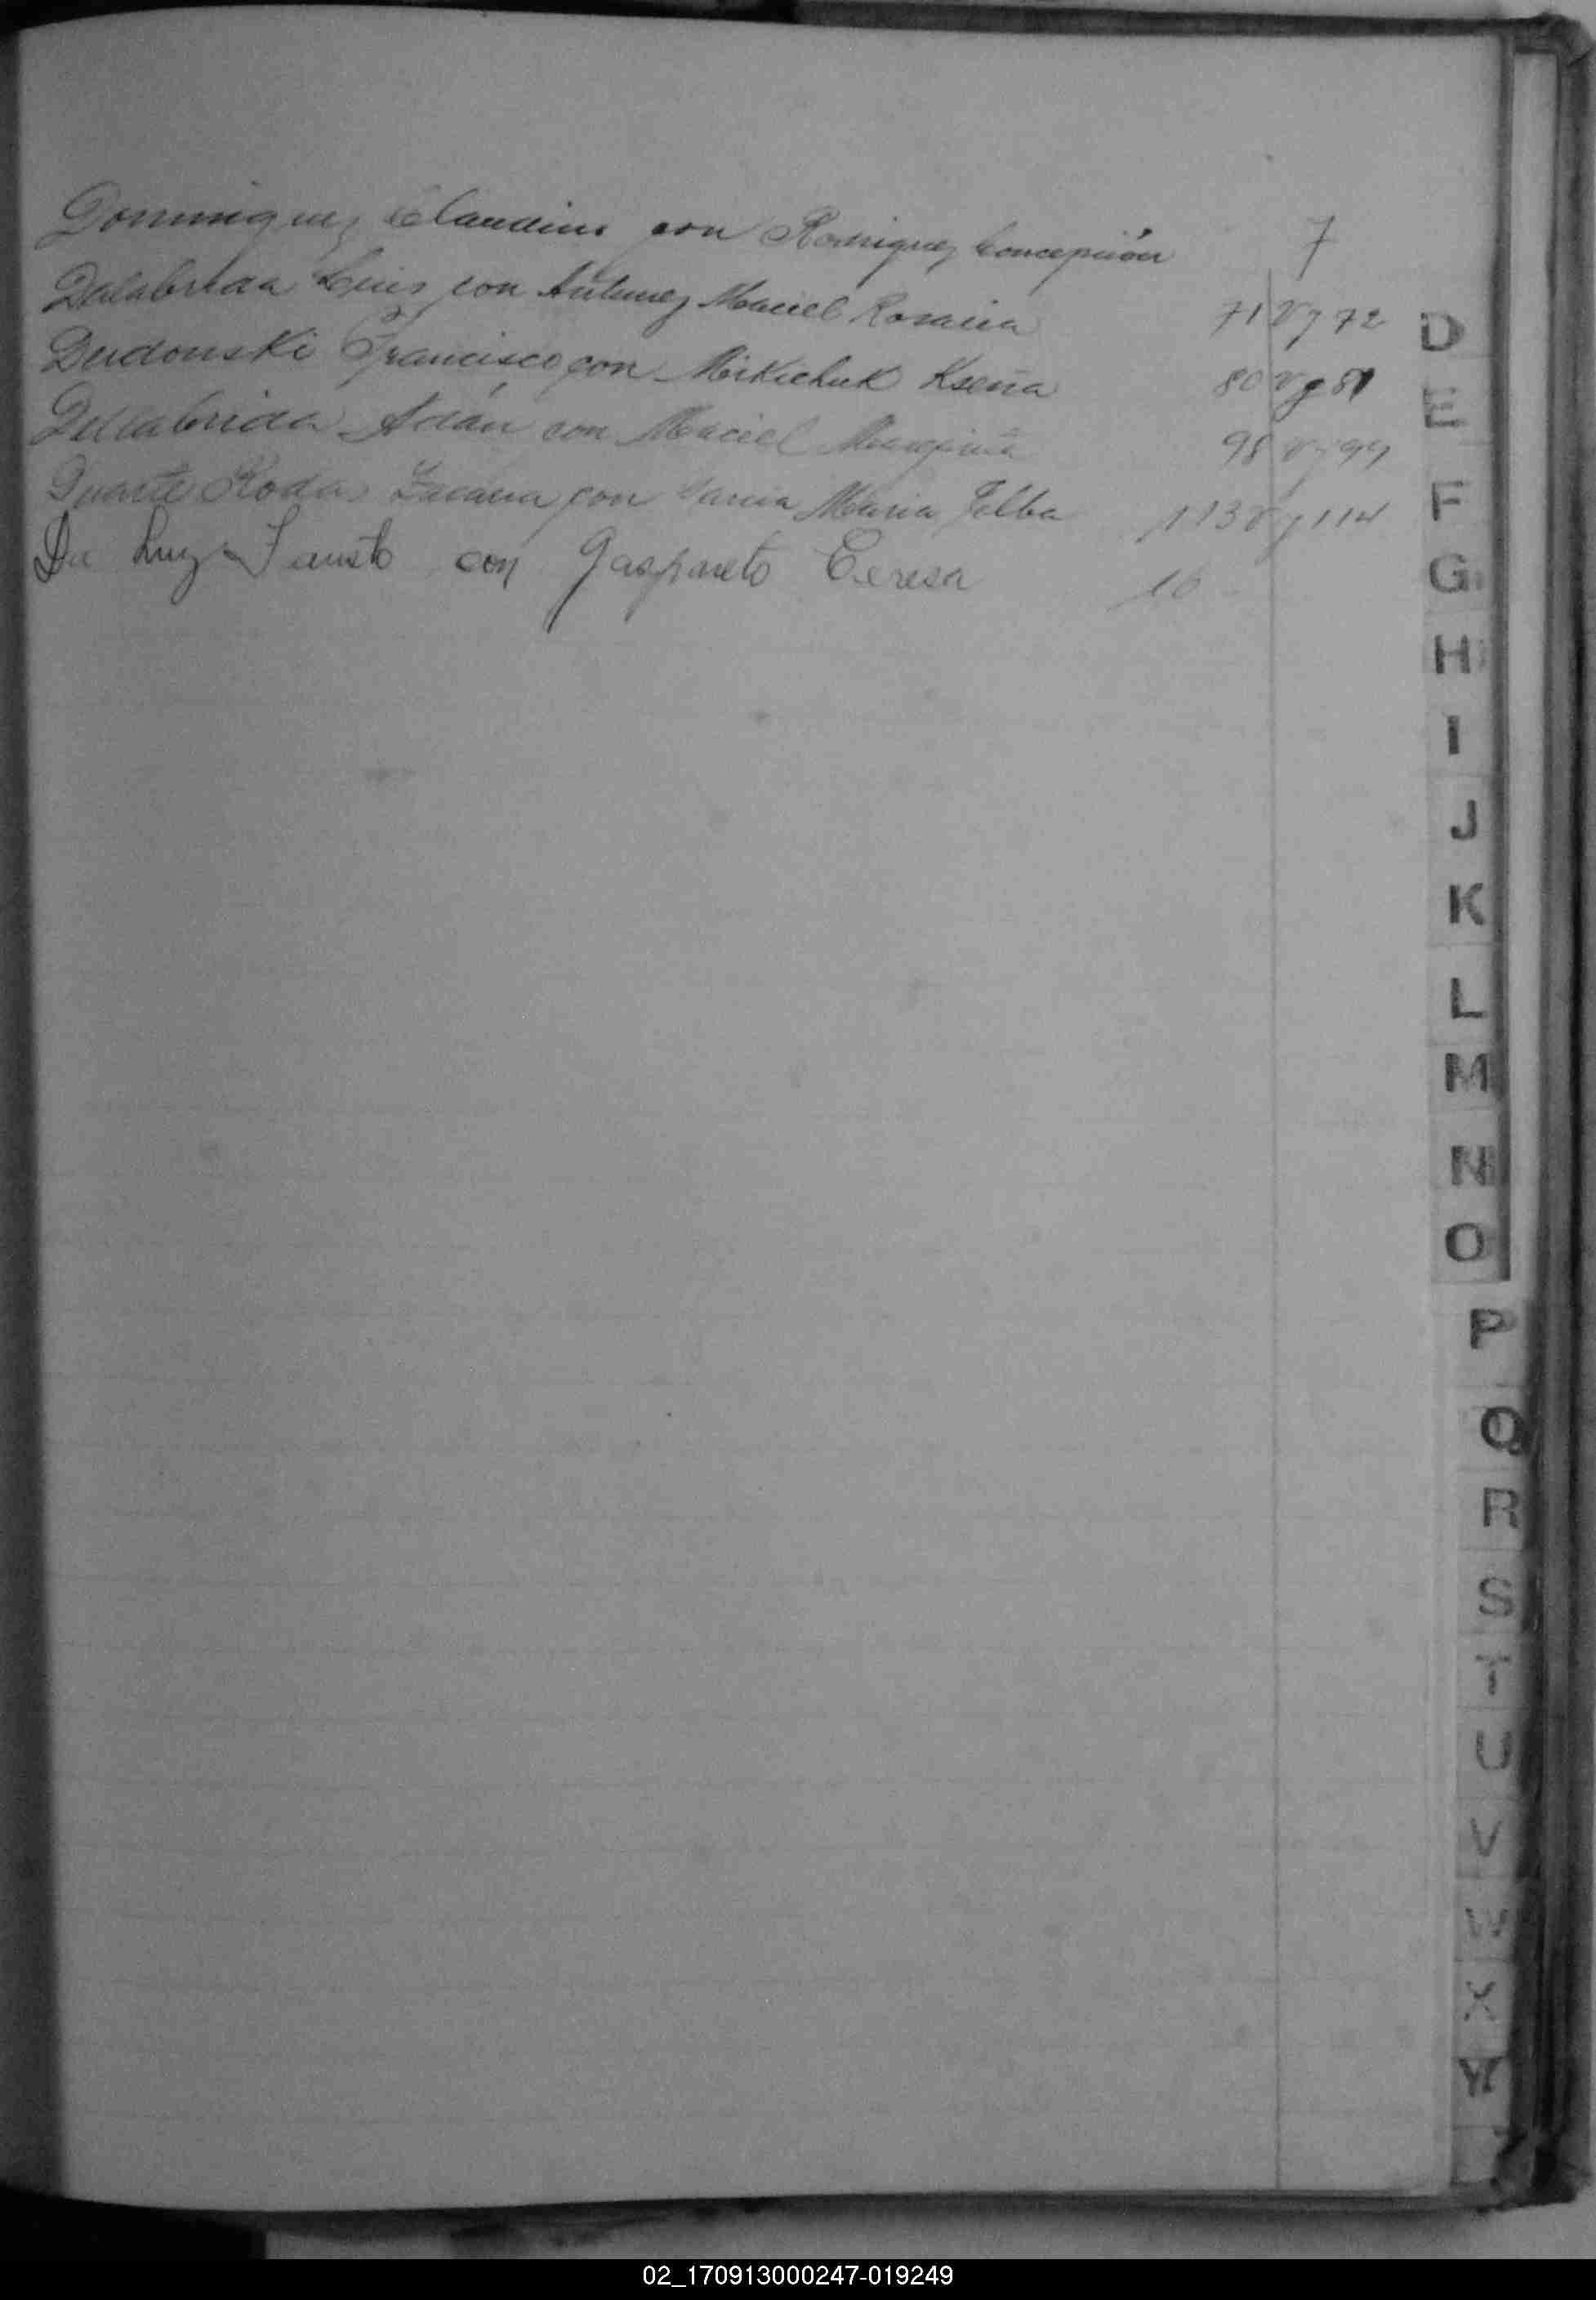 Dominguez Claudino con Rodriguez Concepción 7
Dalabrida Luis con Antunez Maciel Rosalia 71 v y 72
Derdouski Francisco con Mikichuk Ksena 80 v y 81
Dellabrida Adán con Maciel 98 v y 99
Duarte Rodas con Maria Felba 113 v y 114
Da Luz Fausto con Gaspareto Teresa 16
D
E
F
G
H
I
J
K
L
M
N
O
P
Q
R
S
T
U
V
W
X
Y
02_170913000247-019249